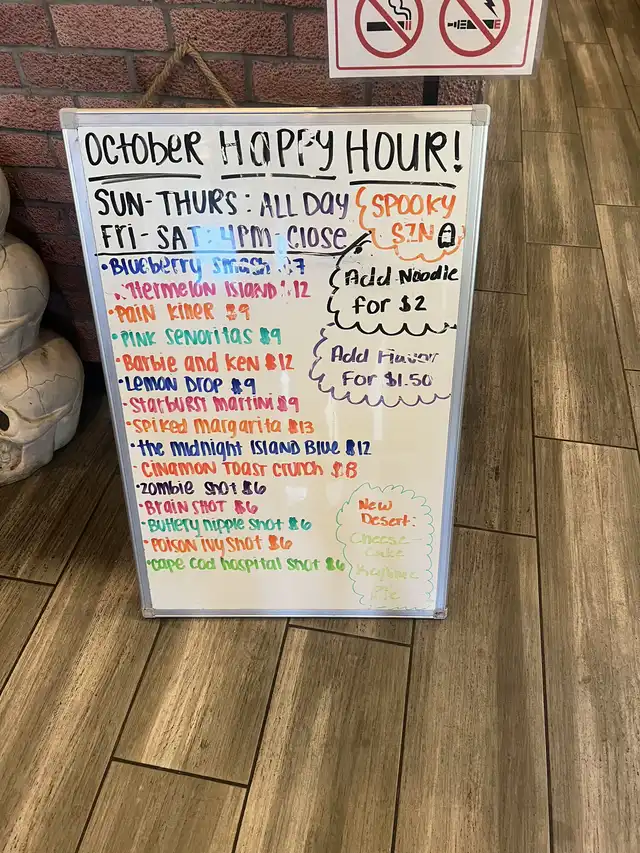 OCTOBER HAPPY HOUR!
SUN-THURS: ALL DAY
FRI-SAT: 4PM-CLOSE
SPOOKY
SZN
• Blueberry Smash $7
Hermelon Island $12
• Pain Killer $9
• Pink Senoritas $9
• Barbie and Ken $12
• Lemon Drop $9
• Starburst Martini $9
• Spiked Margarita $13
• the Midnight Island Blue $12
• Cinamon Toast Crunch $8
• Zombie Shot $6
• Brain Shot $6
• Buttery nipple shot $6
• Poison Ivy Shot $6
• Cape Cod hospital shot $6
Add Noodle
for $2
Add Flavor
For $1.50
New
Desert:
Cheese-
cake
Keylime
Pie